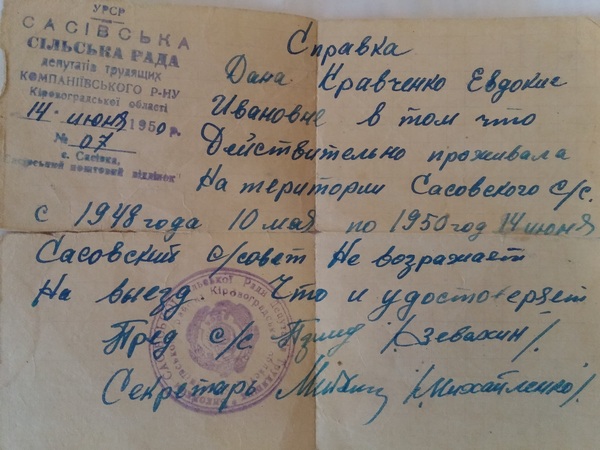 УРСР
САСІВСЬКА
СІЛЬСЬКА РАДА
депутатів трудящих
КОМПАНІЇВСЬКОГО Р-НУ
Кіровоградської області
14. июня 1950 р.
№ 07
с. Сасівка,
поштовий відділок
Справка
Дана Кравченко Евдокие
Ивановне в том что
Действительно проживала
На територии Сасовского с/с.
с 1948 года 10 мая по 1950 год 14 июня
Сасовский с/совет Не возражает
На выезд. Что и удостоверяет
Пред с/с /Зевахин/
Секретарь /Михайленко/